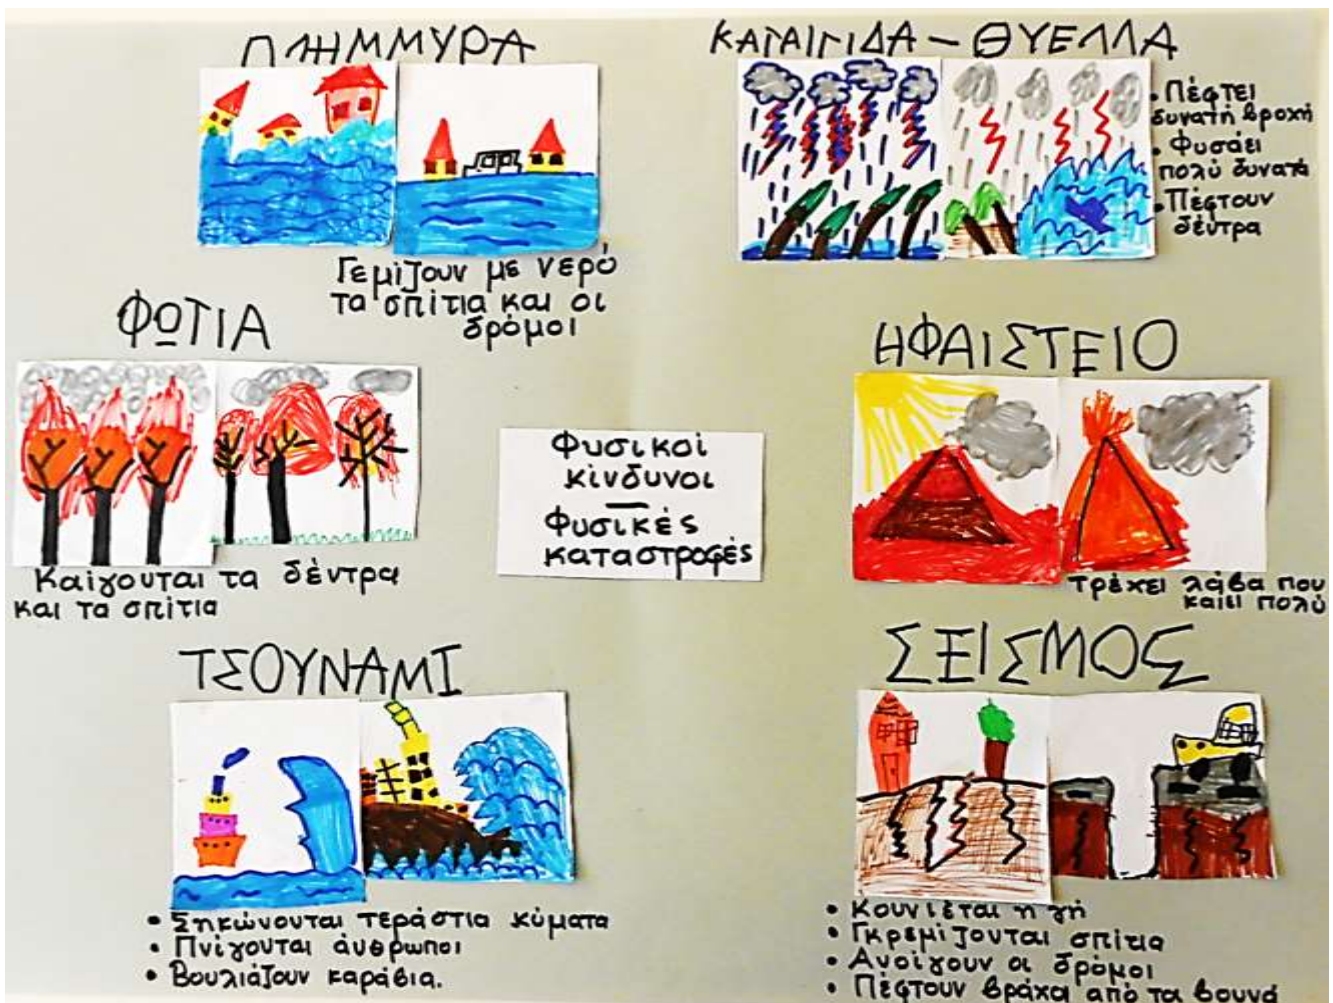 ΠΛΗΜΜΥΡΑ
Γεμίζουν με νερό
τα σπίτια και οι
δρόμοι
ΚΑΤΑΙΓΙΔΑ - ΘΥΕΛΛΑ
• Πέφτει
δυνατή βροχή
• Φυσάει
πολύ δυνατά
• Πέφτουν
δέντρα
ΦΩΤΙΑ
Καίγονται τα δέντρα
και τα σπίτια
Φυσικοί
κίνδυνοι
–
Φυσικές
καταστροφές
ΗΦΑΙΣΤΕΙΟ
τρέχει λάβα που
καίει πολύ
ΤΣΟΥΝΑΜΙ
• Σηκώνονται τεράστια κύματα
• Πνίγονται άνθρωποι
• Βουλιάζουν καράβια.
ΣΕΙΣΜΟΣ
• Κουνιέται η γή
• Γκρεμίζονται σπίτια
• Ανοίγουν οι δρόμοι
• Πέφτουν βράχα από τα βουνά